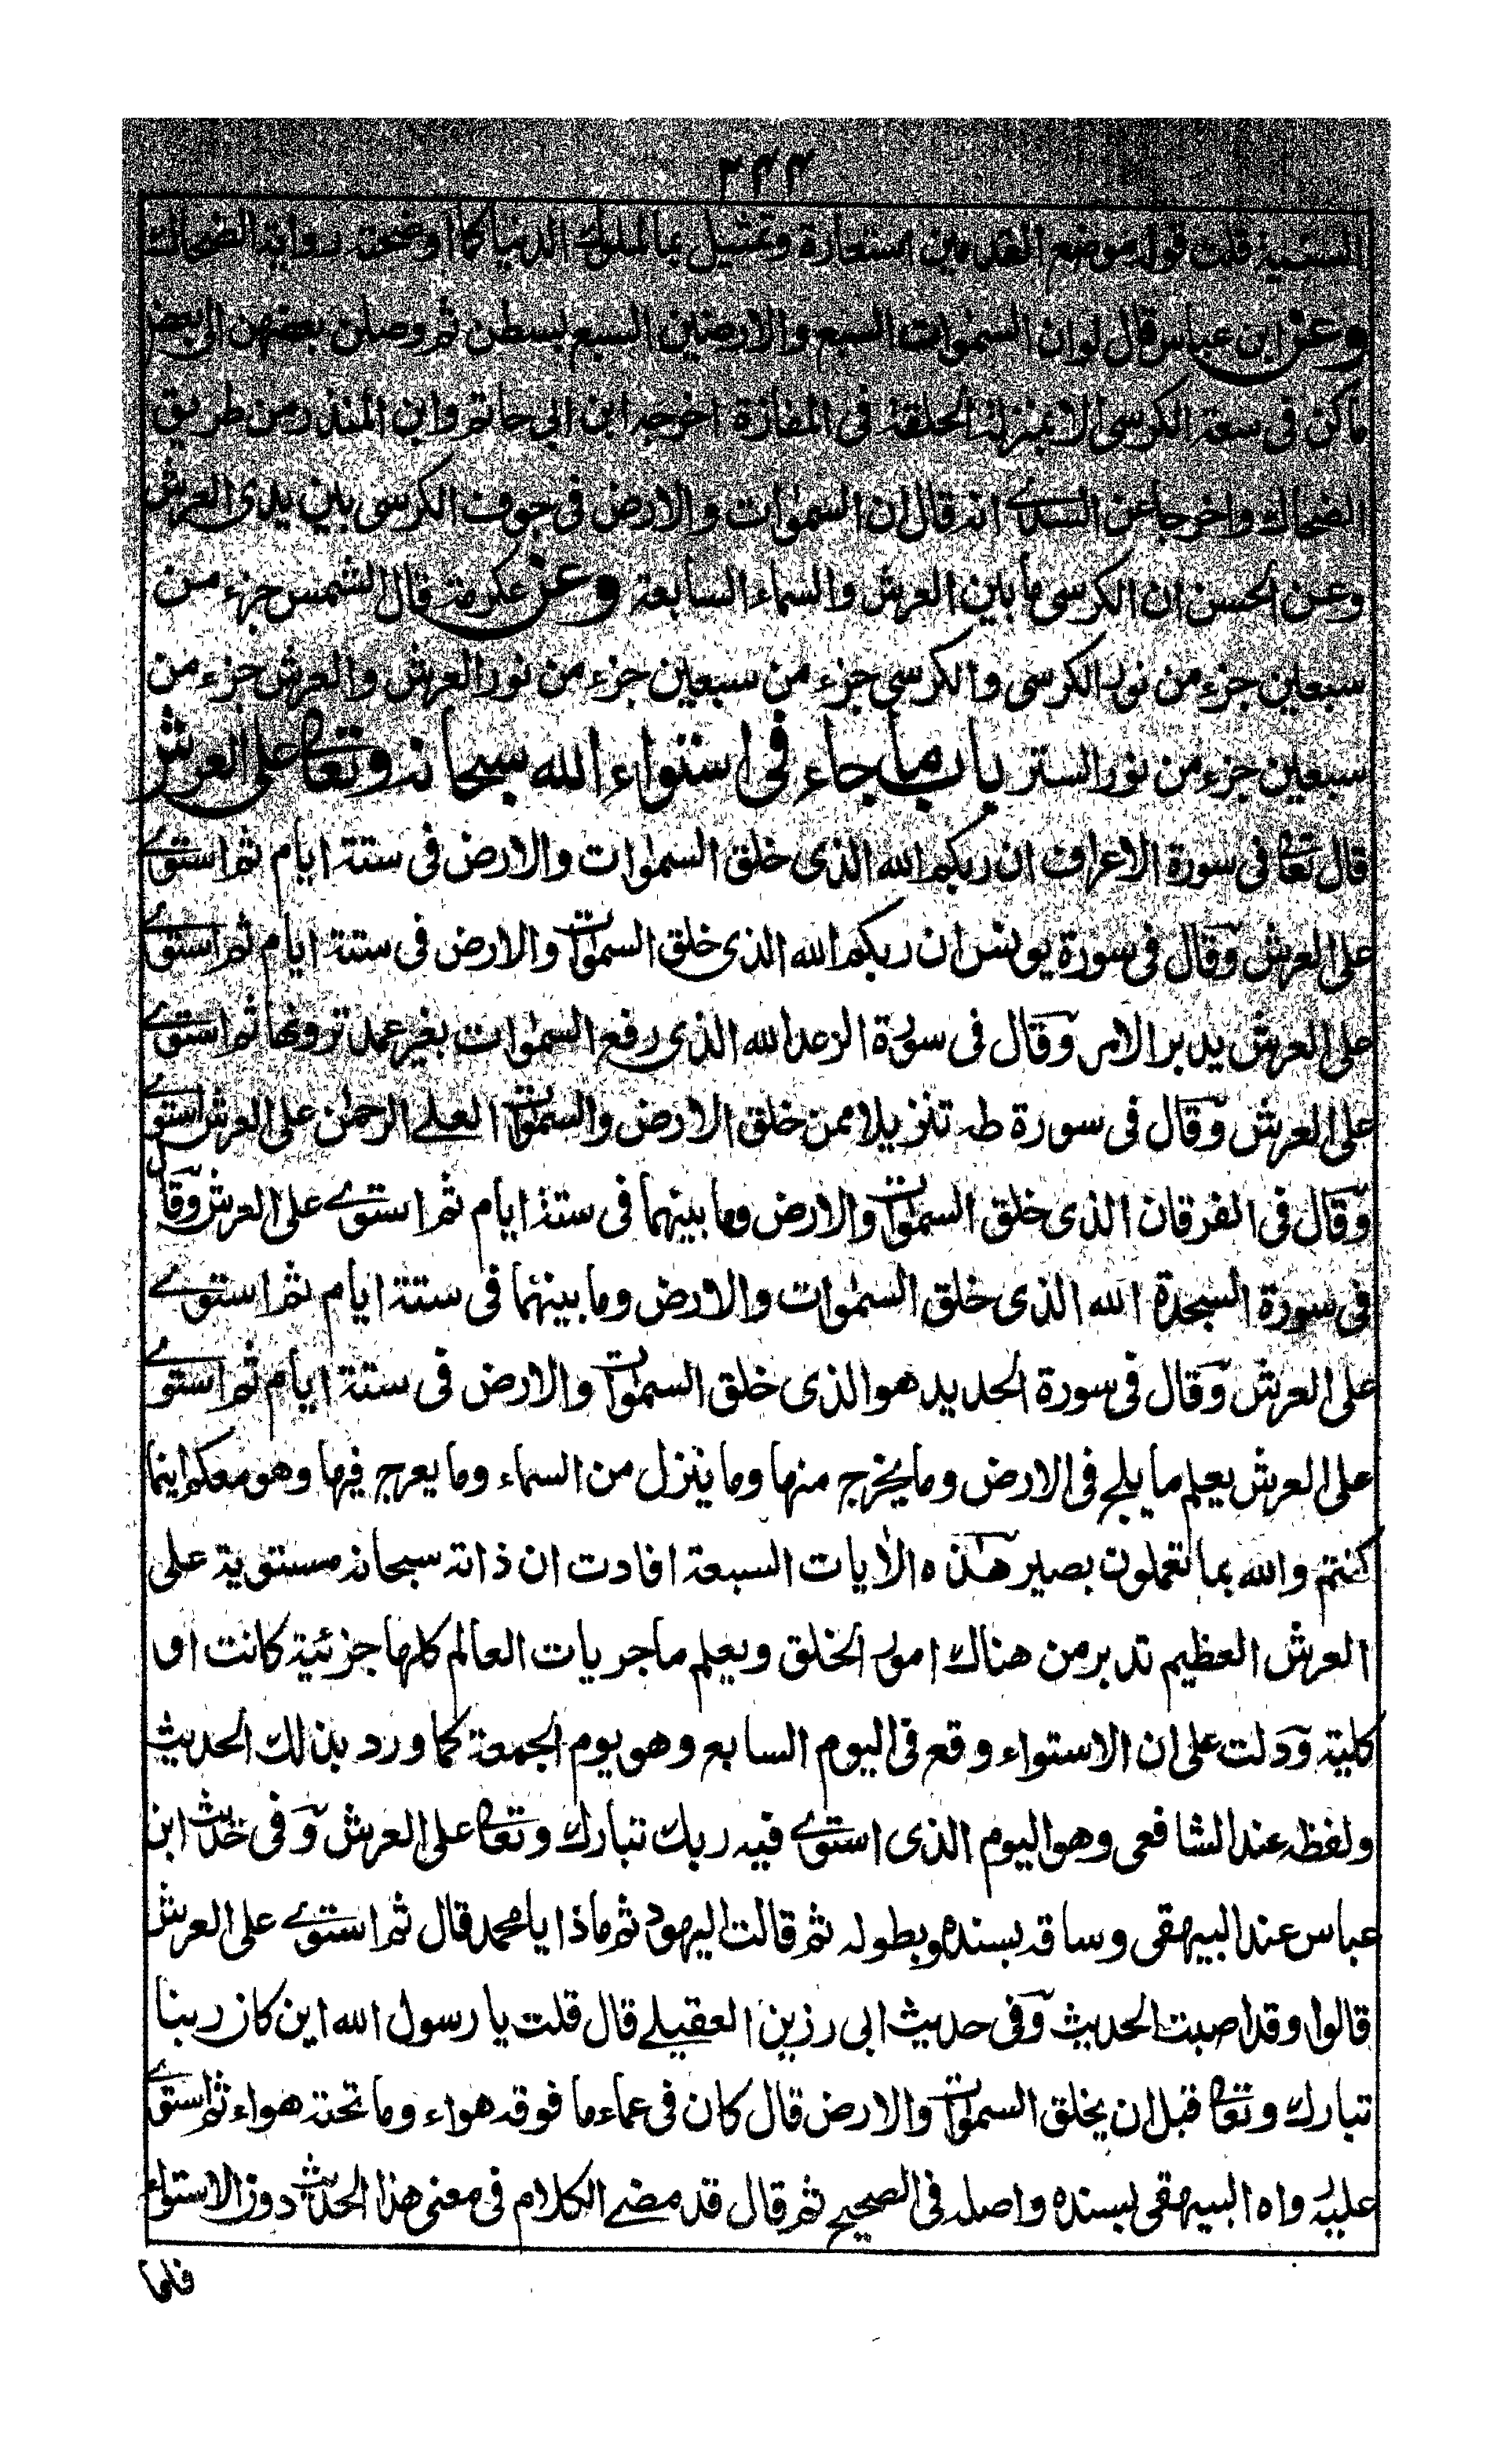 ٢٤٤
قلت قوله موضع القدمين استعارة وتمثيل بما لملوك الدنيا كما اوضحته رواية الضحاك
وعن ابن عباس قال لو ان السمٰوات السبع والارضين السبع بسطن ثم وصلن بعضهن الى بعض
ما كن في سعة الكرسى الا بمنزلة الحلقة فى المفازة اخرجه ابن ابى حاتم وابن المنذر من طريق
الضحاك واخرجا عن السدى انه قال ان السمٰوات والارض فى جوف الكرسى بين يدى العرش
وعن الحسن ان الكرسى ما بين العرش والسماء السابعة وعن عكرمة قال الشمس جزء من
سبعين جزء من نور الكرسى والكرسى جزء من سبعين جزء من نور العرش والعرش جزء من
سبعين جزء من نور الستر باب ما جاء فى استواء الله سبحانه وتعا على العرش
قال تعا فى سورة الاعراف ان ربكم الله الذى خلق السمٰوات والارض فى ستة ايام ثم استوى
على العرش وقال فى سورة يونس ان ربكم الله الذى خلق السمٰوات والارض فى ستة ايام ثم استوى
على العرش يدبر الامر وقال فى سورة الرعد الله الذى رفع السمٰوات بغير عمد ترونها ثم استوى
على العرش وقال فى سورة طه تنزيلا ممن خلق الارض والسمٰوات العلى الرحمٰن على العرش استوى
وقال فى الفرقان الذى خلق السمٰوات والارض وما بينهما فى ستة ايام ثم استوى على العرش وقال
فى سورة السجدة الله الذى خلق السمٰوات والارض وما بينهما فى ستة ايام ثم استوى
على العرش وقال فى سورة الحديد هو الذى خلق السمٰوات والارض فى ستة ايام ثم استوى
على العرش يعلم ما يلج فى الارض وما يخرج منها وما ينزل من السماء وما يعرج فيها وهو معكم اينما
كنتم والله بما تعملون بصير هذه الأيات السبعة افادت ان ذاته سبحانه مستوية على
العرش العظيم تدبر من هناك امور الخلق ويعلم ماجريات العالم كلها جزئية كانت او
كلية ودلت على ان الاستواء وقع فى اليوم السابع وهو يوم الجمعة كما ورد بذلك الحديث
ولفظه عند الشافعى وهو اليوم الذى استوى فيه ربك تبارك وتعا على العرش وفى حديث ابن
عباس عند البيهقى وساقه بسنده وبطوله ثم قالت اليهود ثم ماذا يا محمد قال ثم استوى على العرش
قالوا وقد اصبت الحديث وفى حديث ابى رزين العقيلى قال قلت يا رسول الله اين كان ربنا
تبارك وتعا قبل ان يخلق السمٰوات والارض قال كان فى عماء ما فوقه هواء وما تحته هواء ثم استوى
عليه رواه البيهقى بسنده واصله فى الصحيح ثم قال قد مضى الكلام فى معنى هذا الحديث دون الاستواء
فلما